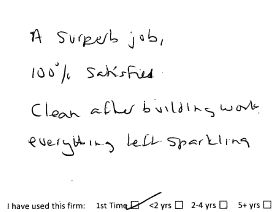 A Superb job,
100% Satisfied
Clean after building work.
everything left sparkling
I have used this firm: 1st Time ☑ <2 yrs ☐ 2-4 yrs ☐ 5+ yrs ☐